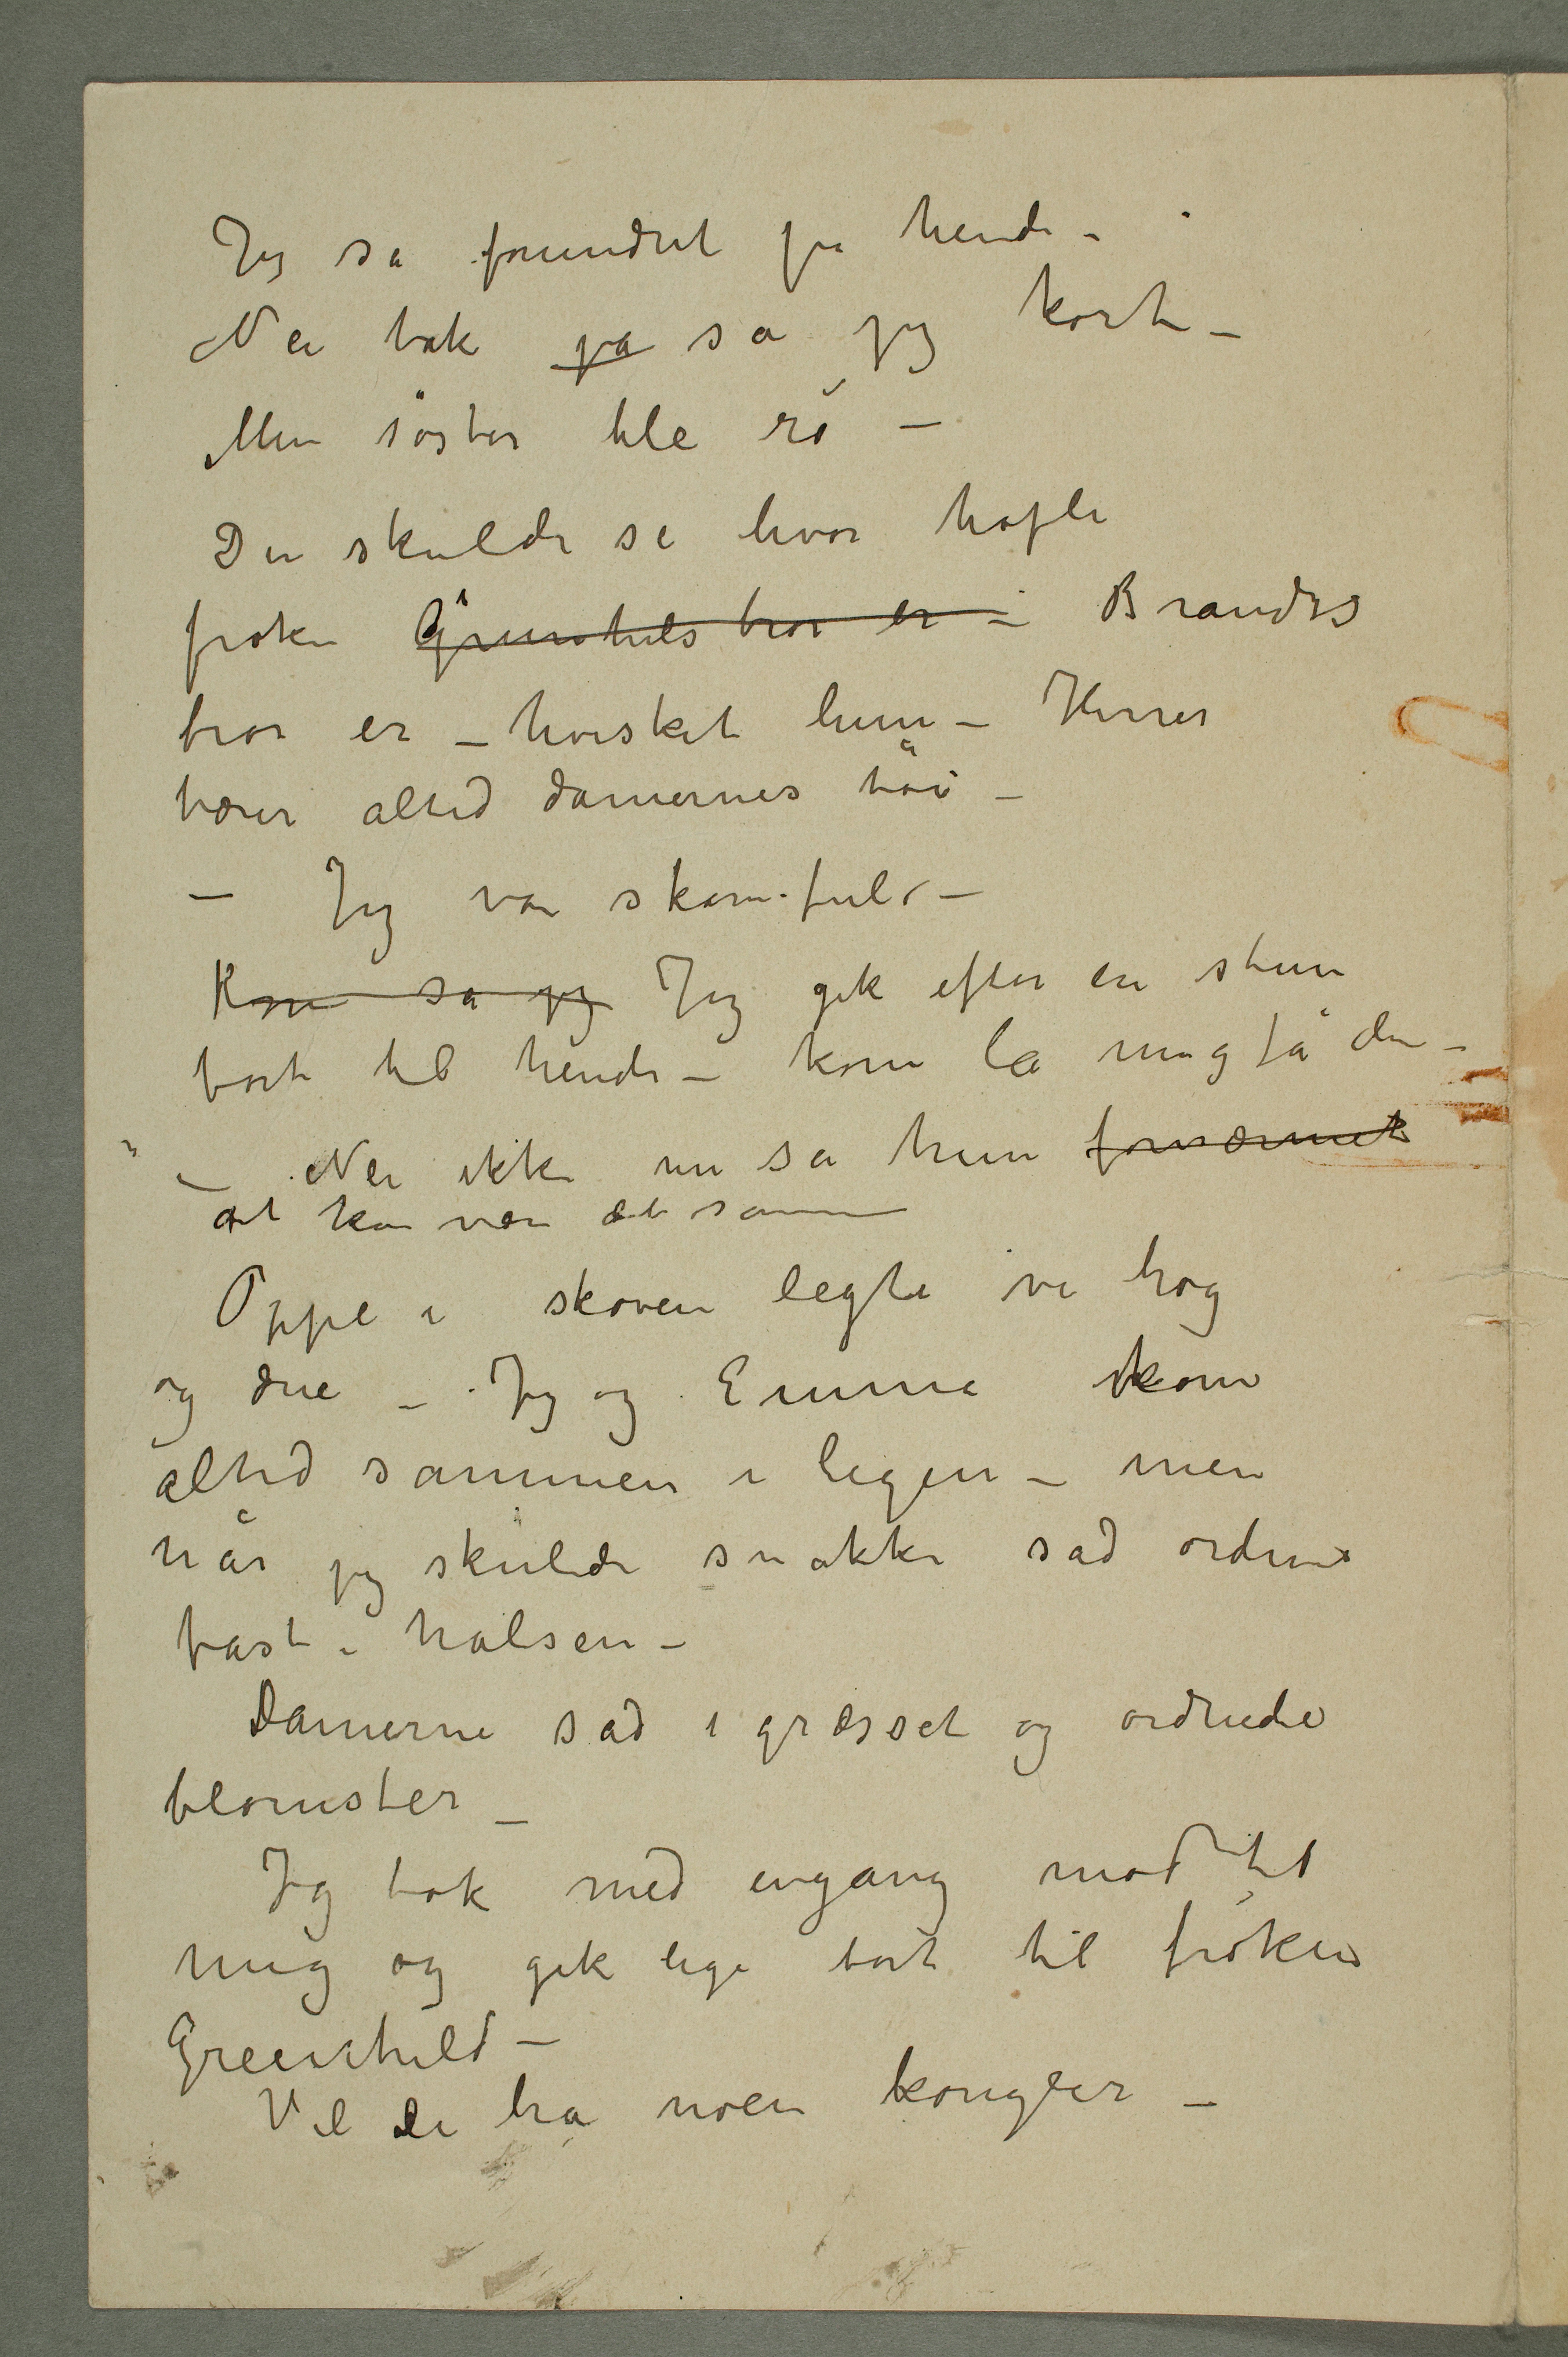 Jeg så forundret på hende –
Nei tak på sa jeg kort –
Min søster ble rø –
Du skulde se hvor høfli
frøken Grünhilds bror er – Brandes
bror er – hvisket hun – Herrer
bærer altid damernes tøi –
– Jeg var skamfuld –
Kom sa jeg Jeg gik efter en stun
bort til hende – kom la mig få den –
– Nei ikke nu sa hun fornærmet
det kan være det samme
Oppe i skoven legte vi høg
og due – Jeg og Emma kom
altid sammen i legen – men
når jeg skulde snakke sad ordene
fast i halsen –
Damerne sad i græsset og ordnede
blomster –
Jeg tok med engang mod til
mig og gik lige bort til frøken
Greenhild –
Vil De ha noen kongler –